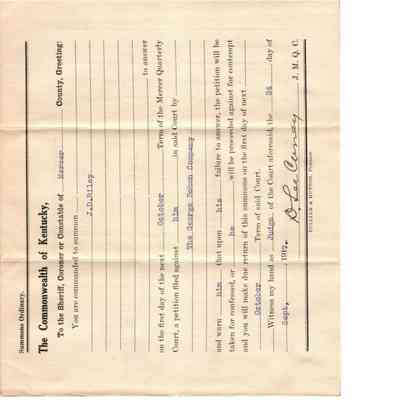 Summons Ordinary.
The Commonwealth of Kentucky,
To the Sheriff, Coroner or Constable of Mercer County, Greeting:
You are commanded to summon
J.D.Riley
to answer
on the first day of the next October Term of the Mercer Quarterly
Court, a petition filed against him in said Court by
The George Bohon Company
and warn him that upon his failure to answer, the petition will be
taken for confessed, or he will be proceeded against for contempt
and you will make due return of this summons on the first day of next
October Term of said Court.
Witness my hand as Judge of the Court aforesaid, the day of
Sept. 191
D. Lee J. M. Q. C.